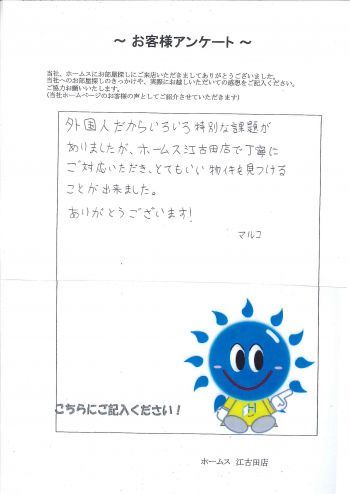 ～ お客様アンケート ～
当社、ホームスにお部屋探しにご来店いただきましてありがとうございました。
当社へのお部屋探しのきっかけや、実際にお越しいただいての感想をご記入ください。
ご協力お願いいたします。
(当社ホームページのお客様の声としてご紹介させていただきます)
外国人だからいろいろ特別な課題が
ありましたが、ホームス江古田店で丁寧に
ご対応いただき、とてもいい物件を見つける
ことが出来ました。
ありがとうございます！
マルコ
こちらにご記入ください！
ホームス 江古田店